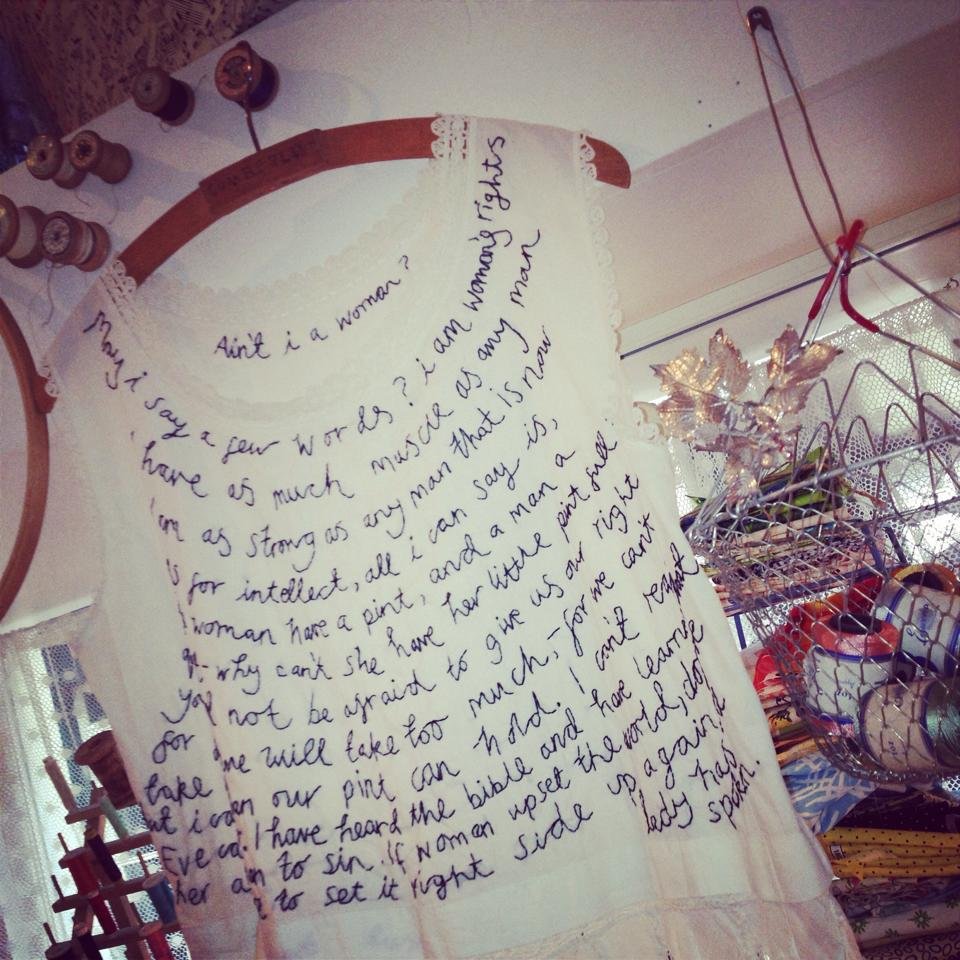 Ain't i a woman?
May i say a few words? i am woman's rights
have as much muscle as any man
i am as strong as any man that is now
for intellect, all i can say is,
woman have a pint, and a man a
why can't she have her little pint full:
You not be afraid to give us our right
for we will take too much,- for we can't
take our pint can hold. I can't read
but i can hear. I have heard the bible and have learned that
Eve her man to sin. If woman upset the world, do
to set it right side up again
lady has spoken.